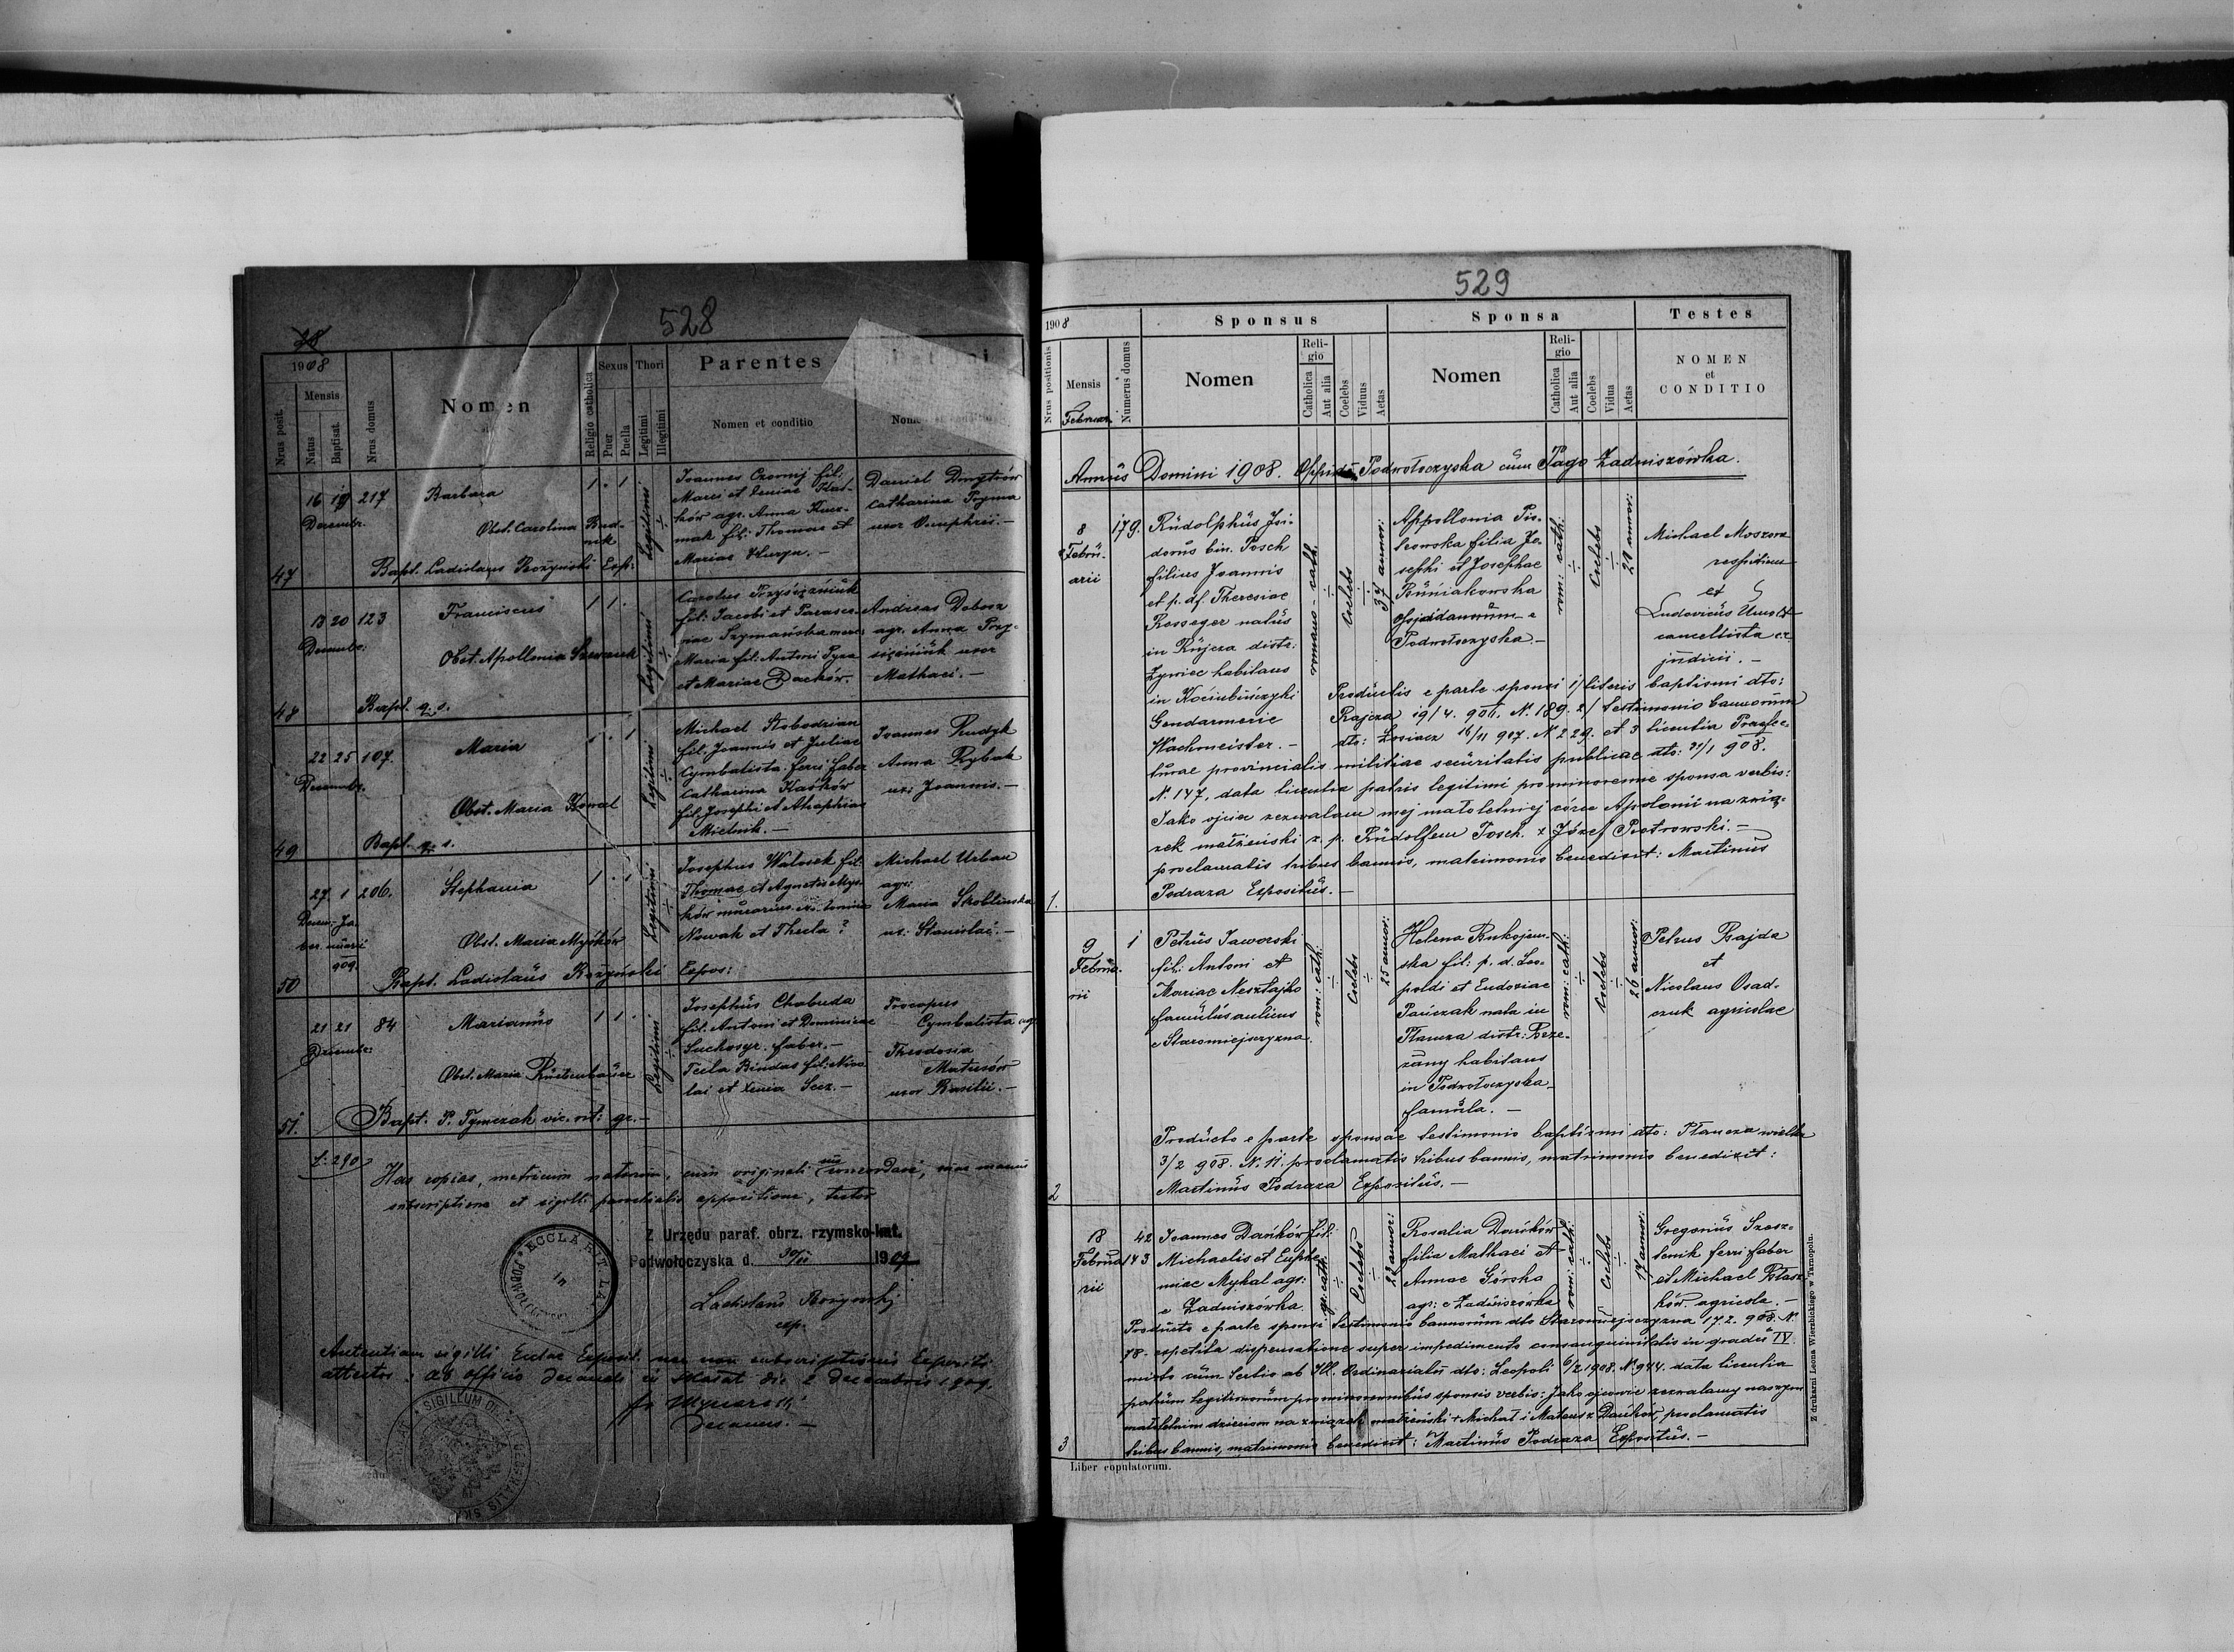 528
1908
Nrus posit.
Mensis
Natus
Baptisat.
Nrus domus
Nomen
Religio catholica
Sexus
Puer
Puella
Thori
Legitimi
Illegitimi
Parentes
Nomen et conditio
47
16 19 217
Decembr.
Barbara
Obst. Carolina Bud-
nik
Bapt. Ladislaus Rożyński Exp:
1 . 1
Legitimi
Joannes Czornij fil:
Marci et Xeniae Kaś-
ków agr. Anna Kusz-
mak fil: Thomae et
Mariae
Daniel Dmytrów
Catharina Pryma
uxor Onuphrii. —
48
13 20 123
Decembr:
Franciscus
Obst. Apollonia Szewczuk
Bapt. q. s.
1 1 .
Legitimi
Carolus
fil: Jacobi et Parasce-
viae Szymańska
Maria fil: Antoni Pyza
et Mariae Daćków.
Andreas Dobosz
agr. Anna Przy-
uxor
Mathaei. —
49
22 25 107.
Decembr.
Maria
Obst. Maria Kowal
Bapt. q. s.
1 . 1
Legitimi
Michael Stobodzian
fil: Joannis et Juliae
Cymbalista ferri faber
Catharina Kaśków
fil: Josephi et Ahaphiae
Mielnik. —
Joannes Rudyk
Anna Rybak
ux: Joannis. —
50
27 1 206.
Decem- Ja-
ber. nuarii
909.
Stephania
Obst. Maria Myśków
Bapt. Ladislaus Rożyński Expos:
1 . 1
Legitimi
Josephus Walosek fil:
Thomae et Agnetis Myś-
ków murarius
Nowak et Thecla ?
Michael Urban
agr:
Maria Skoblinska
ux: Stanislai. —
51.
21 21 84
Decembr:
Marianus
Obst. Maria
Bapt. P. Tymczak vic. rit: gr. —
1 1 .
Legitimi
Josephus Chabuda
fil: Antoni et Dominicae
Suchosyr. faber. —
Tecla Bindas fil: Nico-
lai et Xenia —
Procopus
Cymbalista agr
Theodosia
Matusów
uxor Basilii. —
L: 290
Has copias, metricum natorum, cum originali concordare, mea manus
subscriptione et sigilli parochialis appositione, testor
Z Urzędu paraf. obrz. rzymsko-kat.
Podwołoczyska d. 30/11 1909
Ladislaus Rożynskj
exp.
ECCLA RIT LAT
in
Autentiam sigilli Eccl. Exposit. nec non subscriptionis Expositi
attestor. Ab officio Decanali in Skałat die 2 Decembris 1909.
Decanus. —
SIGILLUM
529
1908
Nrus positionis
Mensis
Februar.
Numerus domus
Sponsus
Nomen
Reli-
gio
Catholica
Aut alia
Coelebs
Viduus
Aetas
Sponsa
Nomen
Reli-
gio
Catholica
Aut alia
Coelebs
Vidua
Aetas
Testes
NOMEN
et
CONDITIO
Annus Domini 1908. Oppidi Podwołoczyska cum Pago Zadniszówka.
1.
8
Febru-
arii
179.
Rudolphus Isi-
dorus bin. Tosch
filius Joannis
et p. df. Theresiae
Rosseger natus
in Rajcza distr.
Żywiec habitans
in Kociubińczyki
Gendarmerie
Wachmeister. —
romano-cath.
Coelebs
37 annor:
Appollonia Pio-
trowska filia Jo-
sephi et Josephae
Runiakowska
e
Podwołoczyska. —
rom: cath:
Coelebs
Michael Moszora
et
Ludovicus
cancellista
judicii. —
Productis e parte sponsi 1/ literis baptismi dto:
Rajcza 19/4. 906. N. 189. 2/ testimonio bannorum
dto: Łosiacz 16/11 907. N 229. et 3 licentia Praefec-
turae provincialis militiae securitatis publicae dto: 31/1 908.
N. 147, data licentia patris legitimi pro minorenne sponsa verbis:
Jako ojciec zezwalam mej małoletniej córce Apolonii na zwią-
zek małżeński z p. Rudolfem Tosch. + Józef Piotrowski. —
proclamatis tribus bannis, matrimonio benedixit: Martinus
Podraza Expositus. —
2
9
Februa-
rii
1
Petrus Jaworski
fil: Antoni et
Mariae Nesztajko
famulus aulicus
e Staromiejszczyzna.
rom: cath:
Coelebs
25 annor:
Helena Bukojem-
ska fil: p. d. Leo-
poldi et Eudoxiae
Pańczak nata in
Płaucza distr: Brze-
żany habitans
in Podwołoczyska
famula. —
rom: cath:
Coelebs
26 annor:
Petrus Bajda
et
Nicolaus Osad-
czuk agricolae
Producto e parte sponsae testimonio baptismi dto: Płaucza wielka
3/2 908. N. 11. proclamatis tribus bannis, matrimonio benedixit:
Martinus Podraza Expositus. —
3
18
Februa-
rii
42
143
Joannes Dańków fil:
Michaelis et Euphe-
miae Mykal agr:
e Zadniszówka.
gr. cath:
Coelebs
22 annor:
Rosalia Dańków
filia Mathaei et
Annae Górska
agr: e Zadniszówka
rom: cath:
Coelebs
17 annor:
Gregorius Szosz-
ferri faber
et Michael
ków. agricola. —
Producto e parte sponsi testimonio bannorum dto Staromiejszczyzna 17.2. 908. N.
78. expetita dispensatione super impedimento consanguinitatis in gradu IV.
mixto cum tertio ab Ill. Ordinariatu dto: Leopoli 6/2 1908. N. 944. data licentia
patrum legitimorum pro minorennibus sponsis verbis: Jako ojcowie zezwalamy naszym
małoletnim dzieciom na związek małżeński + Michał i Mateusz Dańków, proclamatis
tribus bannis, matrimonio benedixit: Martinus Podraza Expositus. —
Liber copulatorum.
Z drukarni Leona Wierzbickiego w Tarnopolu.